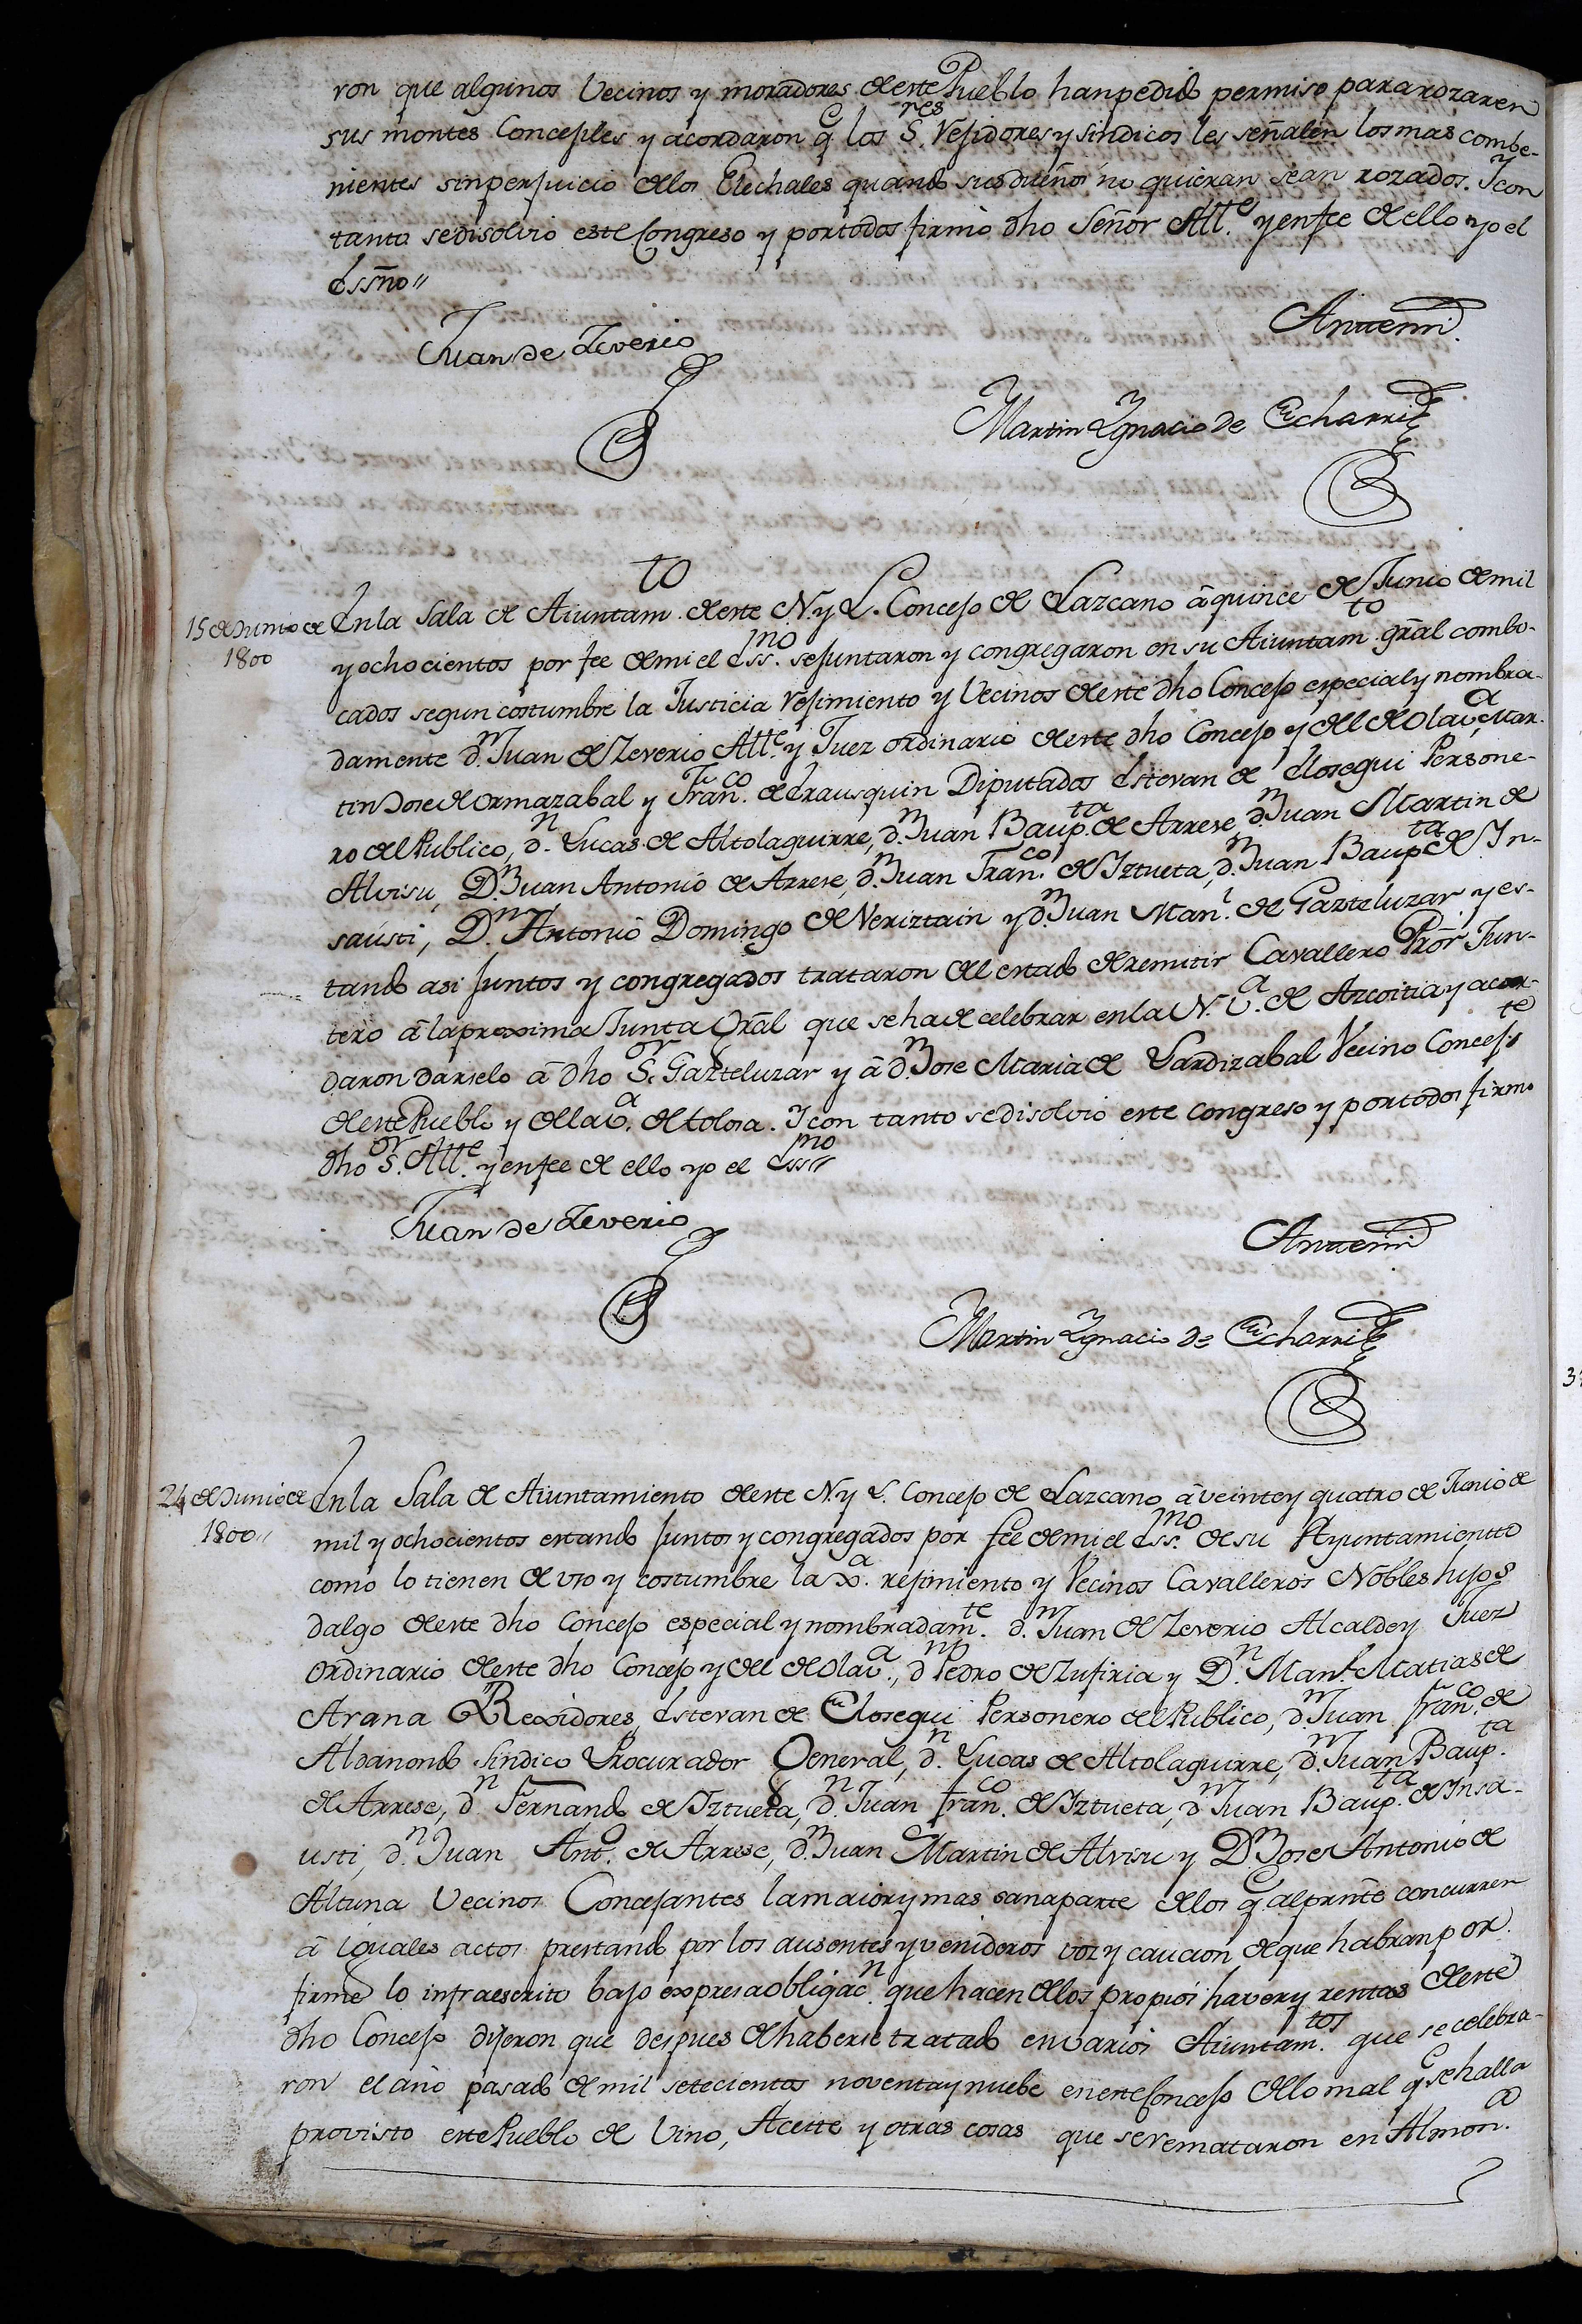 ron que algunos Vecinos y moradores de este Pueblo han pedido permiso para rozar en
sus montes Concejiles y acordaron q.e los S.res Rejidores y Sindicos les señalen los mas combe-
nientes sin perjuicio de los Elechales quando sus dueños no quieran sean rozados. Y con
tanto se disolvio este Congreso y por todos firmó dho Señor All.e y en fee de ello yo el
Essño"
Juan de Zeverio
Ante mi
Martin Ygnacio de Echarri
15 de Junio de
1800
En la Sala de Aiuntam.to de este N. y L. Concejo de Lazcano â quince de Junio de mil
y ochocientos por fee de mi el Ess.mo se juntaron y congregaron en su Aiuntam.to grāl combo-
cados segun costumbre la Justicia Rejimiento y Vecinos de este dho Concejo especial y nombra-
damente d.n Juan de Zeverio All.e y Juez ordinario de este dho Concejo y del de Olav.a, Mar-
tin Jose de Ormazabal y Fran.co de Erausquin Diputados Estevan de Elosegui Persone-
ro del Publico, d.n Lucas de Altolaguirre, d.n Juan Baup.ta de Arrese, d.n Juan Martin de
Alvisu, D.n Juan Antonio de Arrese, d.n Juan Fran.co de Iztueta, d.n Juan Baup.ta de In-
sausti, D.n Antonio Domingo de Neriztain y d.n Juan Man.l de Gazteluzar y es-
tando asi juntos y congregados trataron del estado de remitir Cavallero Prōr Jun-
tero â la proxima Junta Grāl que se ha de celebrar en la N. V.a de Azcoitia y acor-
daron darselo â dho S.or Gazteluzar y â d.n Jose Maria de Lardizabal Vecino Concej.te
de este Pueblo y de la V.a de tolosa. Y con tanto se disolvio este congreso y por todos firmo
dho S.or All.e y en fee de ello yo el Ess.mo"
Juan de Zeverio
Ante mi
Martin Ygnacio de Echarri
24 de Junio de
1800"
En la Sala de Aiuntamiento de este N. y L. Concejo de Lazcano â veinte y quatro de Junio de
mil y ochocientos estando juntos y congregados por fee de mi el Ess.mo de su Ayuntamientto
como lo tienen de uso y costumbre la x.a rejimiento y Vecinos Cavalleros Nobles hijos
dalgo de este dho Concejo especial y nombradam.te d.n Juan de Zeverio Alcalde y Juez
Ordinario de este dho Concejo y del de Olav.a, d.n Pedro de Zufiria y D.n Man.l Matias de
Arana Rexidores, Estevan de Elosegui Personero del Publico, d.n Juan fran.co de
Aldanondo Sindico Procurador General, d.n Lucas de Altolaguirre, d.n Juan Baup.ta
de Arrese, d.n Fernando de Iztueta, d.n Juan fran.co de Iztueta, d.n Juan Baup.ta de Insa-
usti, d.n Juan Ant.o de Arrese, d.n Juan Martin de Alvisu y D.n Jose Antonio de
Altuna Vecinos Concejantes la maior y mas sana parte de los q.e al prnte concurren
â iguales actos prestando por los ausentes y venideros voz y caucion de que habran por
firme lo infraescrito bajo expresa obligac.n que hacen de los propios haver y rentas de este
dho Concejo dijeron que despues de haberse tratado en varios Aiuntam.tos que se celebra-
ron el año pasado de mil setecientos noventa y nuebe en este Concejo de lo mal q.e se halla
provisto este Pueblo de Vino, Aceite y otras cosas que se remataron en Almon.a